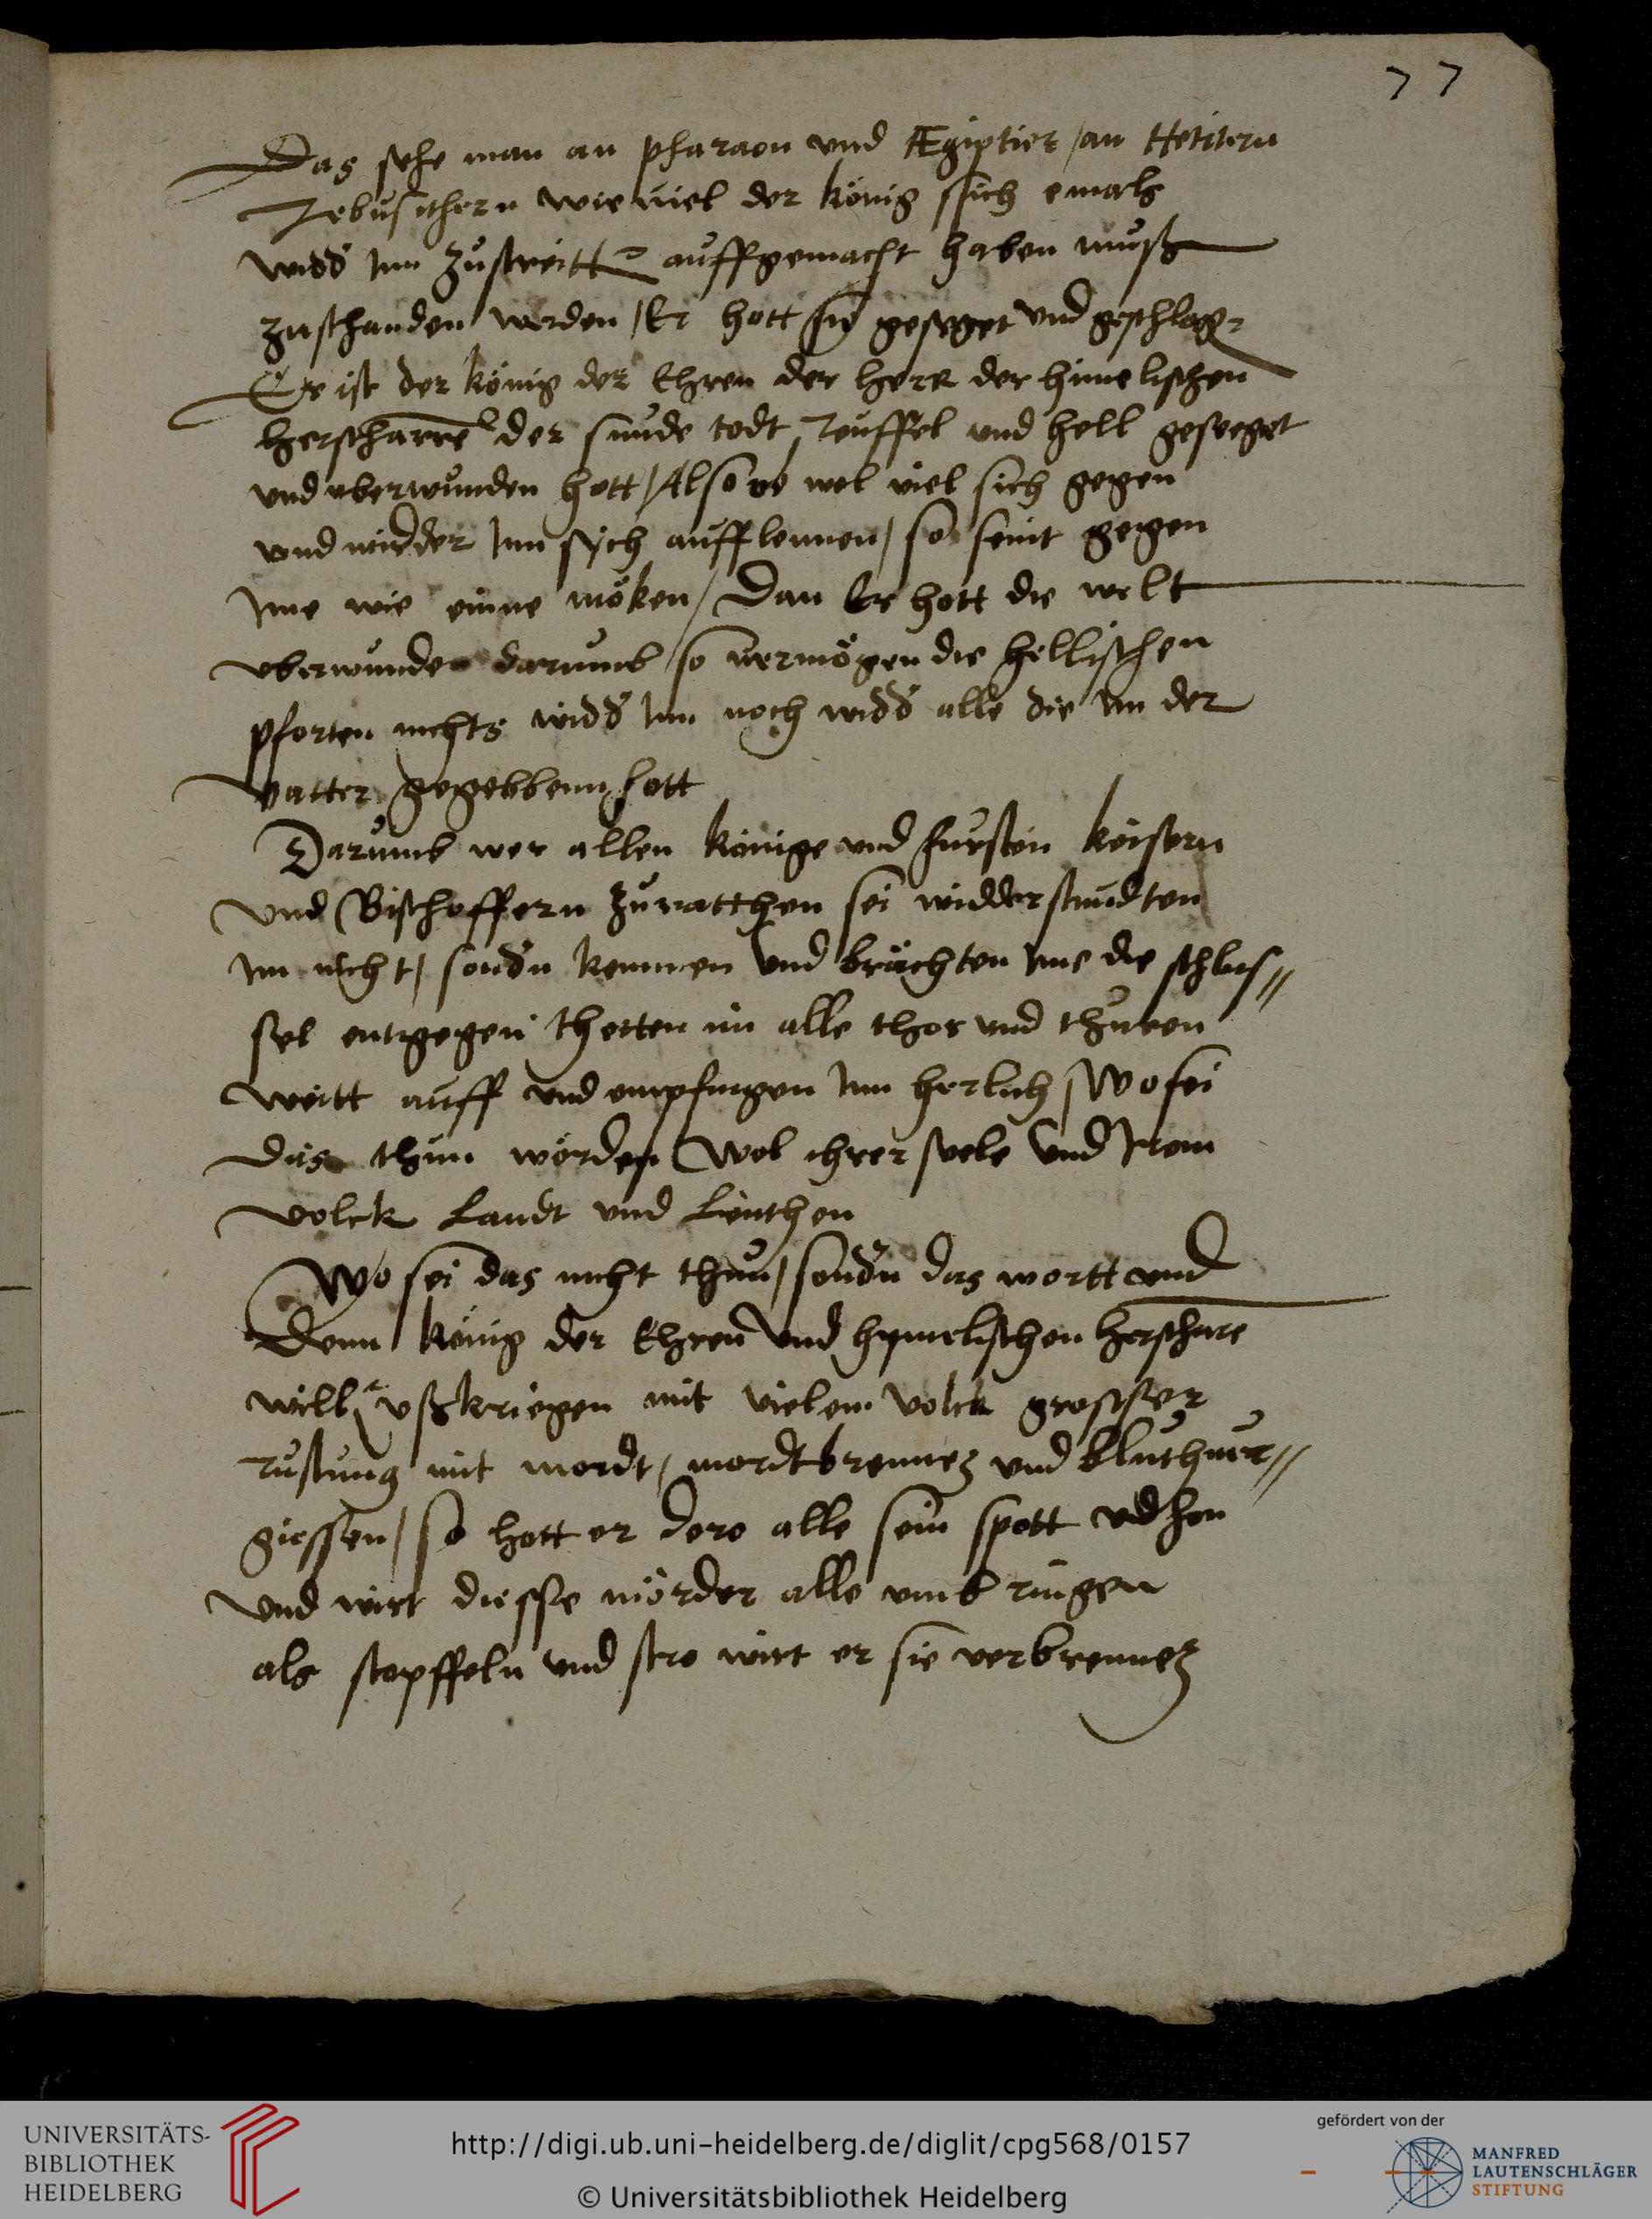 77
Das sehe man an pharaon vnd Ægiptier / an Hetitern
Jebusithern wie viel der könig ssich emals
widd Jnn zustreitt auffgemacht haben muß
zuschanden werden / Er hott sie geseget vnd geschlag
Er ist der könig der Ehren der herr der himelischen
herscharre der sunde todt Teuffel vnd hell geseeget
vnd vberwunden hott / Also ob wol viel sich gegen
vnd widder Jnn sych aufflennen / so seint gegen
Jme wie einne möken / Dan Er hott die welt
vberwunden darumb so vermögen die hellischen
pforten nichts widd Jnn noch widd alle die Jm der
vatter gegebbenn hott
Darumb wer allen könige vnd fursten keisern
vnd Bischoffern zuratthen sei widderstundten
Jm nicht / sondn kemmen vnd brächten Jme die schlus//
sel entgegen thetten im alle thor vnd thuren
weitt auff vnd empfingen Jnn herlich / Wo sei
das thun wörden wol ihrer seele vnd Jrem
volck Landt vnd Leuthen
Wo sei das nicht thun / sondn das wortt vnd
Denn könig der Ehren vnd hymelischen herschare
will vßkriegen mit vielem volck grosser
rustung mit mordt / mordtbrennen vnd bluthver//
giessen / so hott er dero alle sein spott vnd hon
vnd wirt diesse mörder alle vmbringen
als stopffeln vnd stro wirt er sie verbrennen
UNIVERSITÄTS-
BIBLIOTHEK
HEIDELBERG
http://digi.ub.uni-heidelberg.de/diglit/cpg568/0157
© Universitätsbibliothek Heidelberg
gefördert von der
MANFRED
LAUTENSCHLÄGER
STIFTUNG